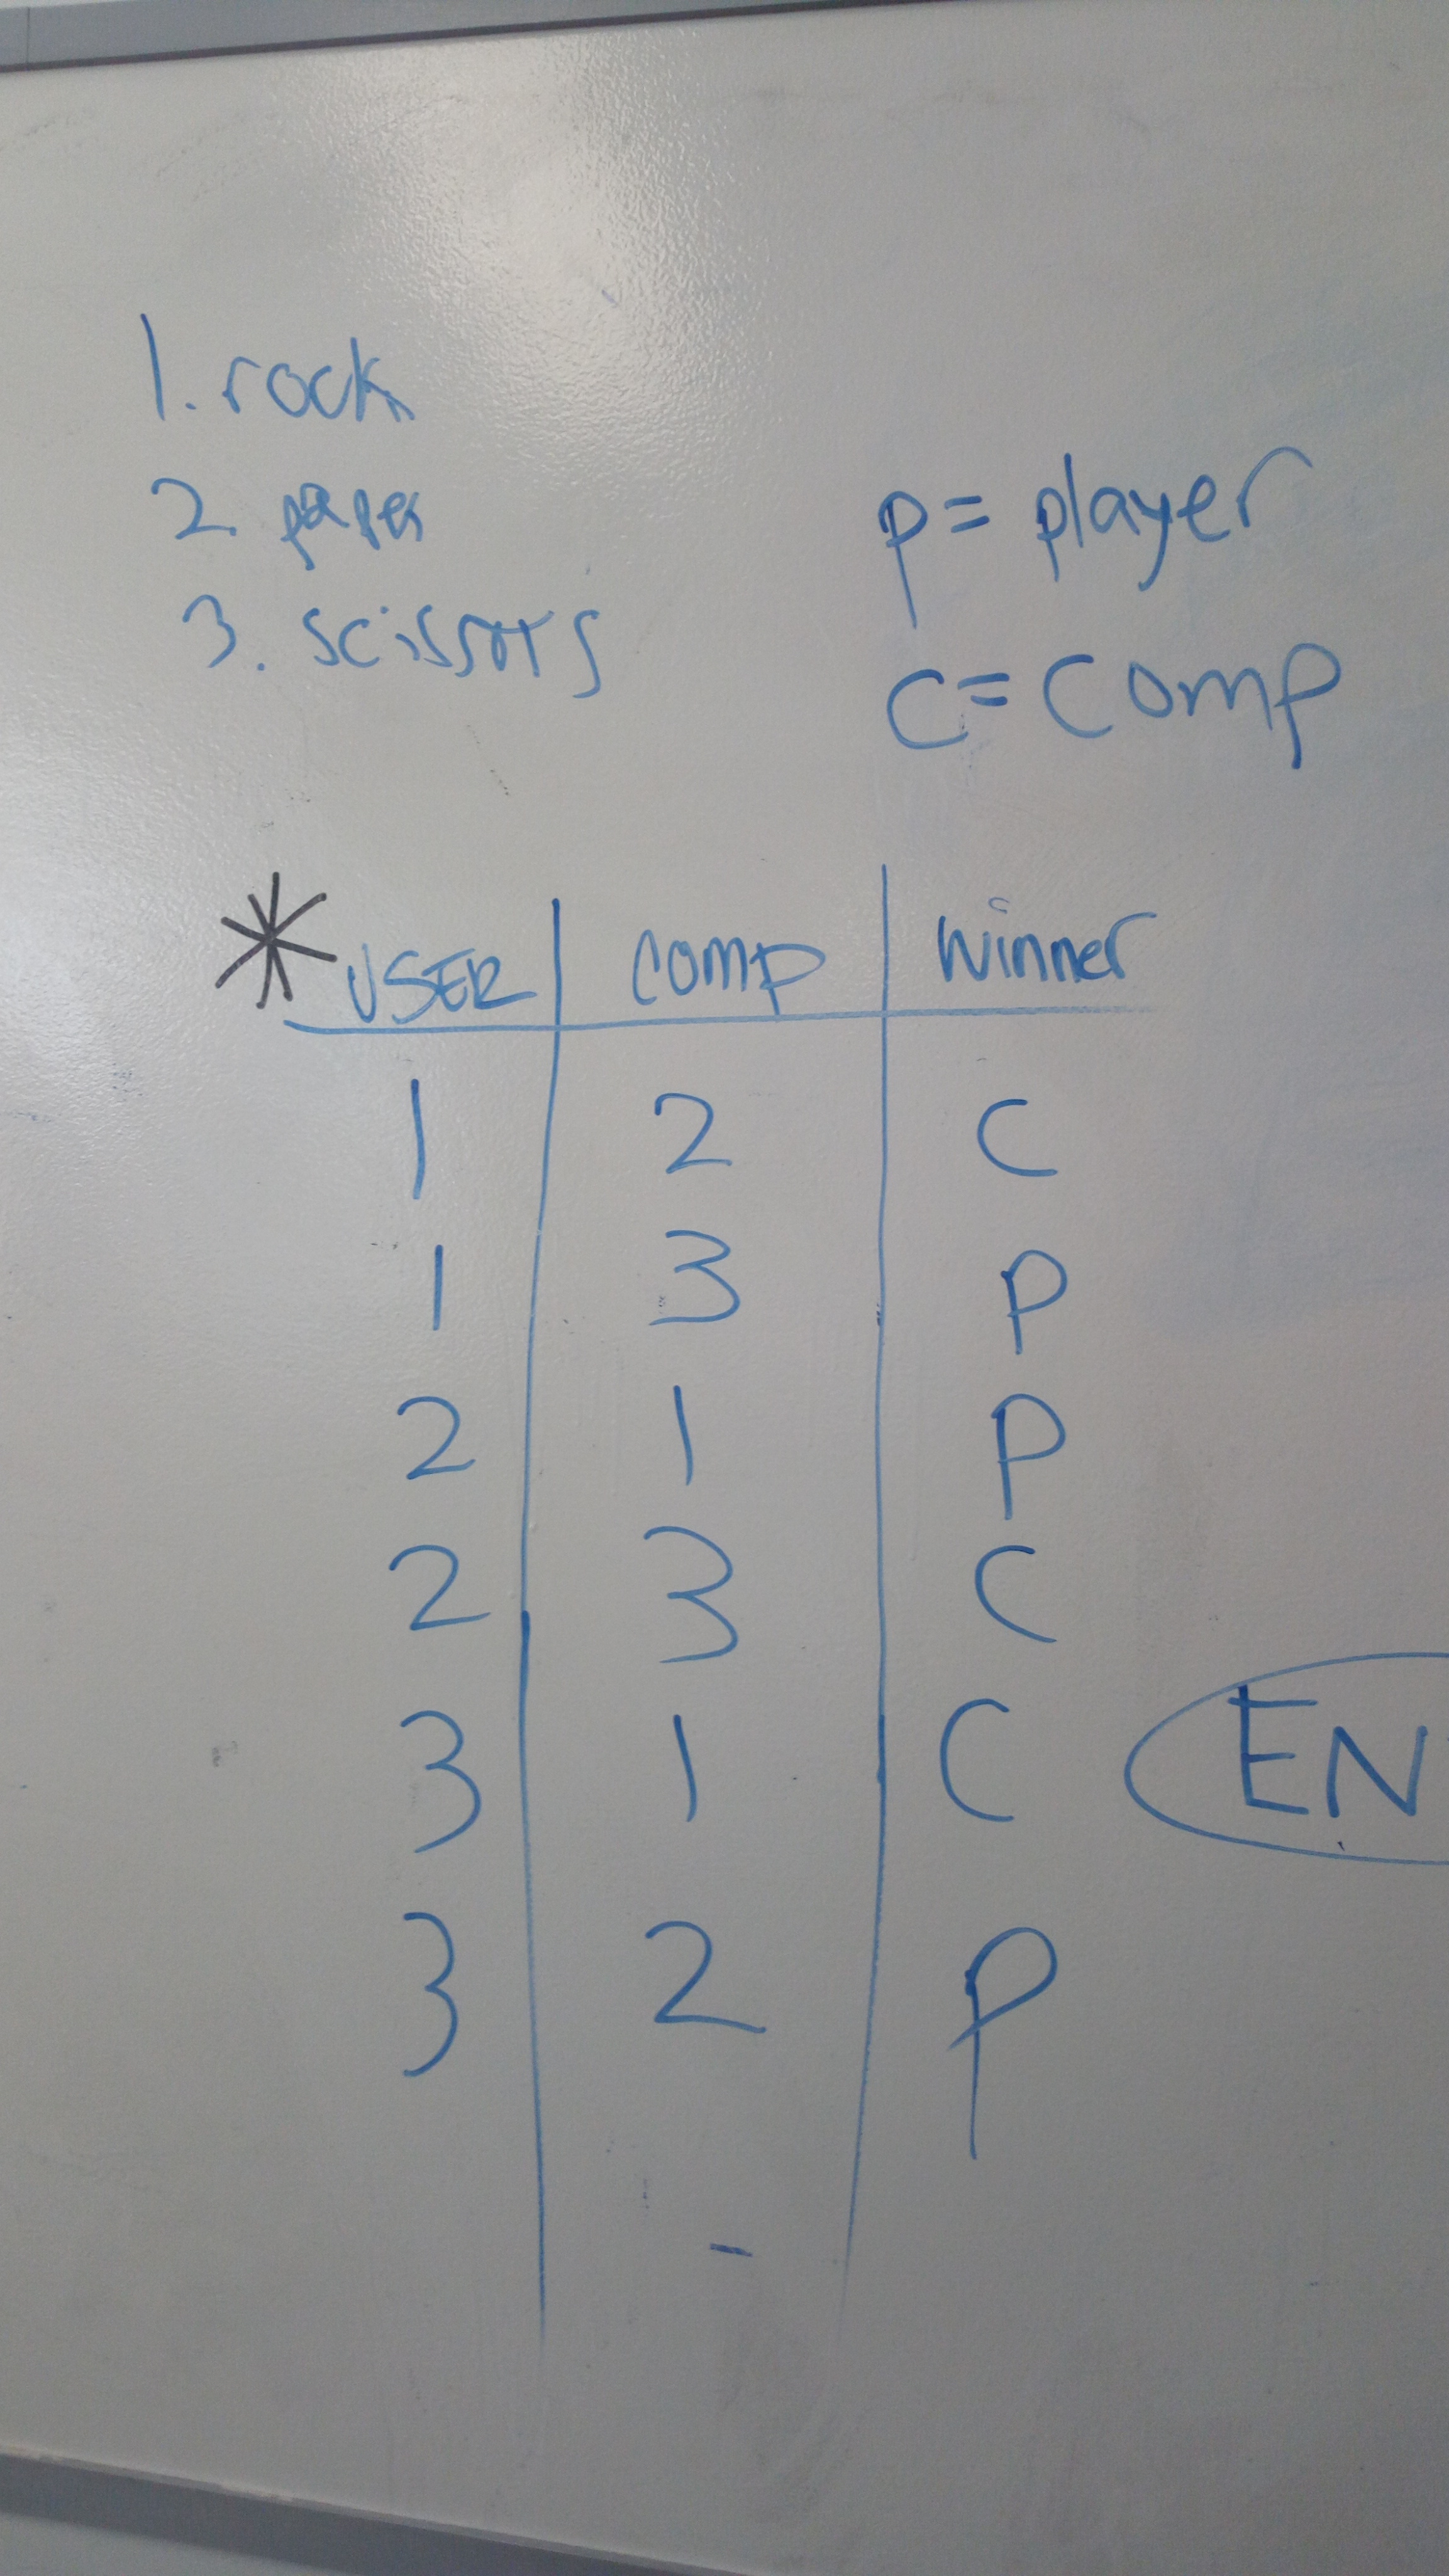 1. rock
2. paper
3. scissors
p = player
C = Comp
* USER comp winner
1 2 C
1 3 P
2 1 P
2 3 C
3 1 C
3 2 P
EN